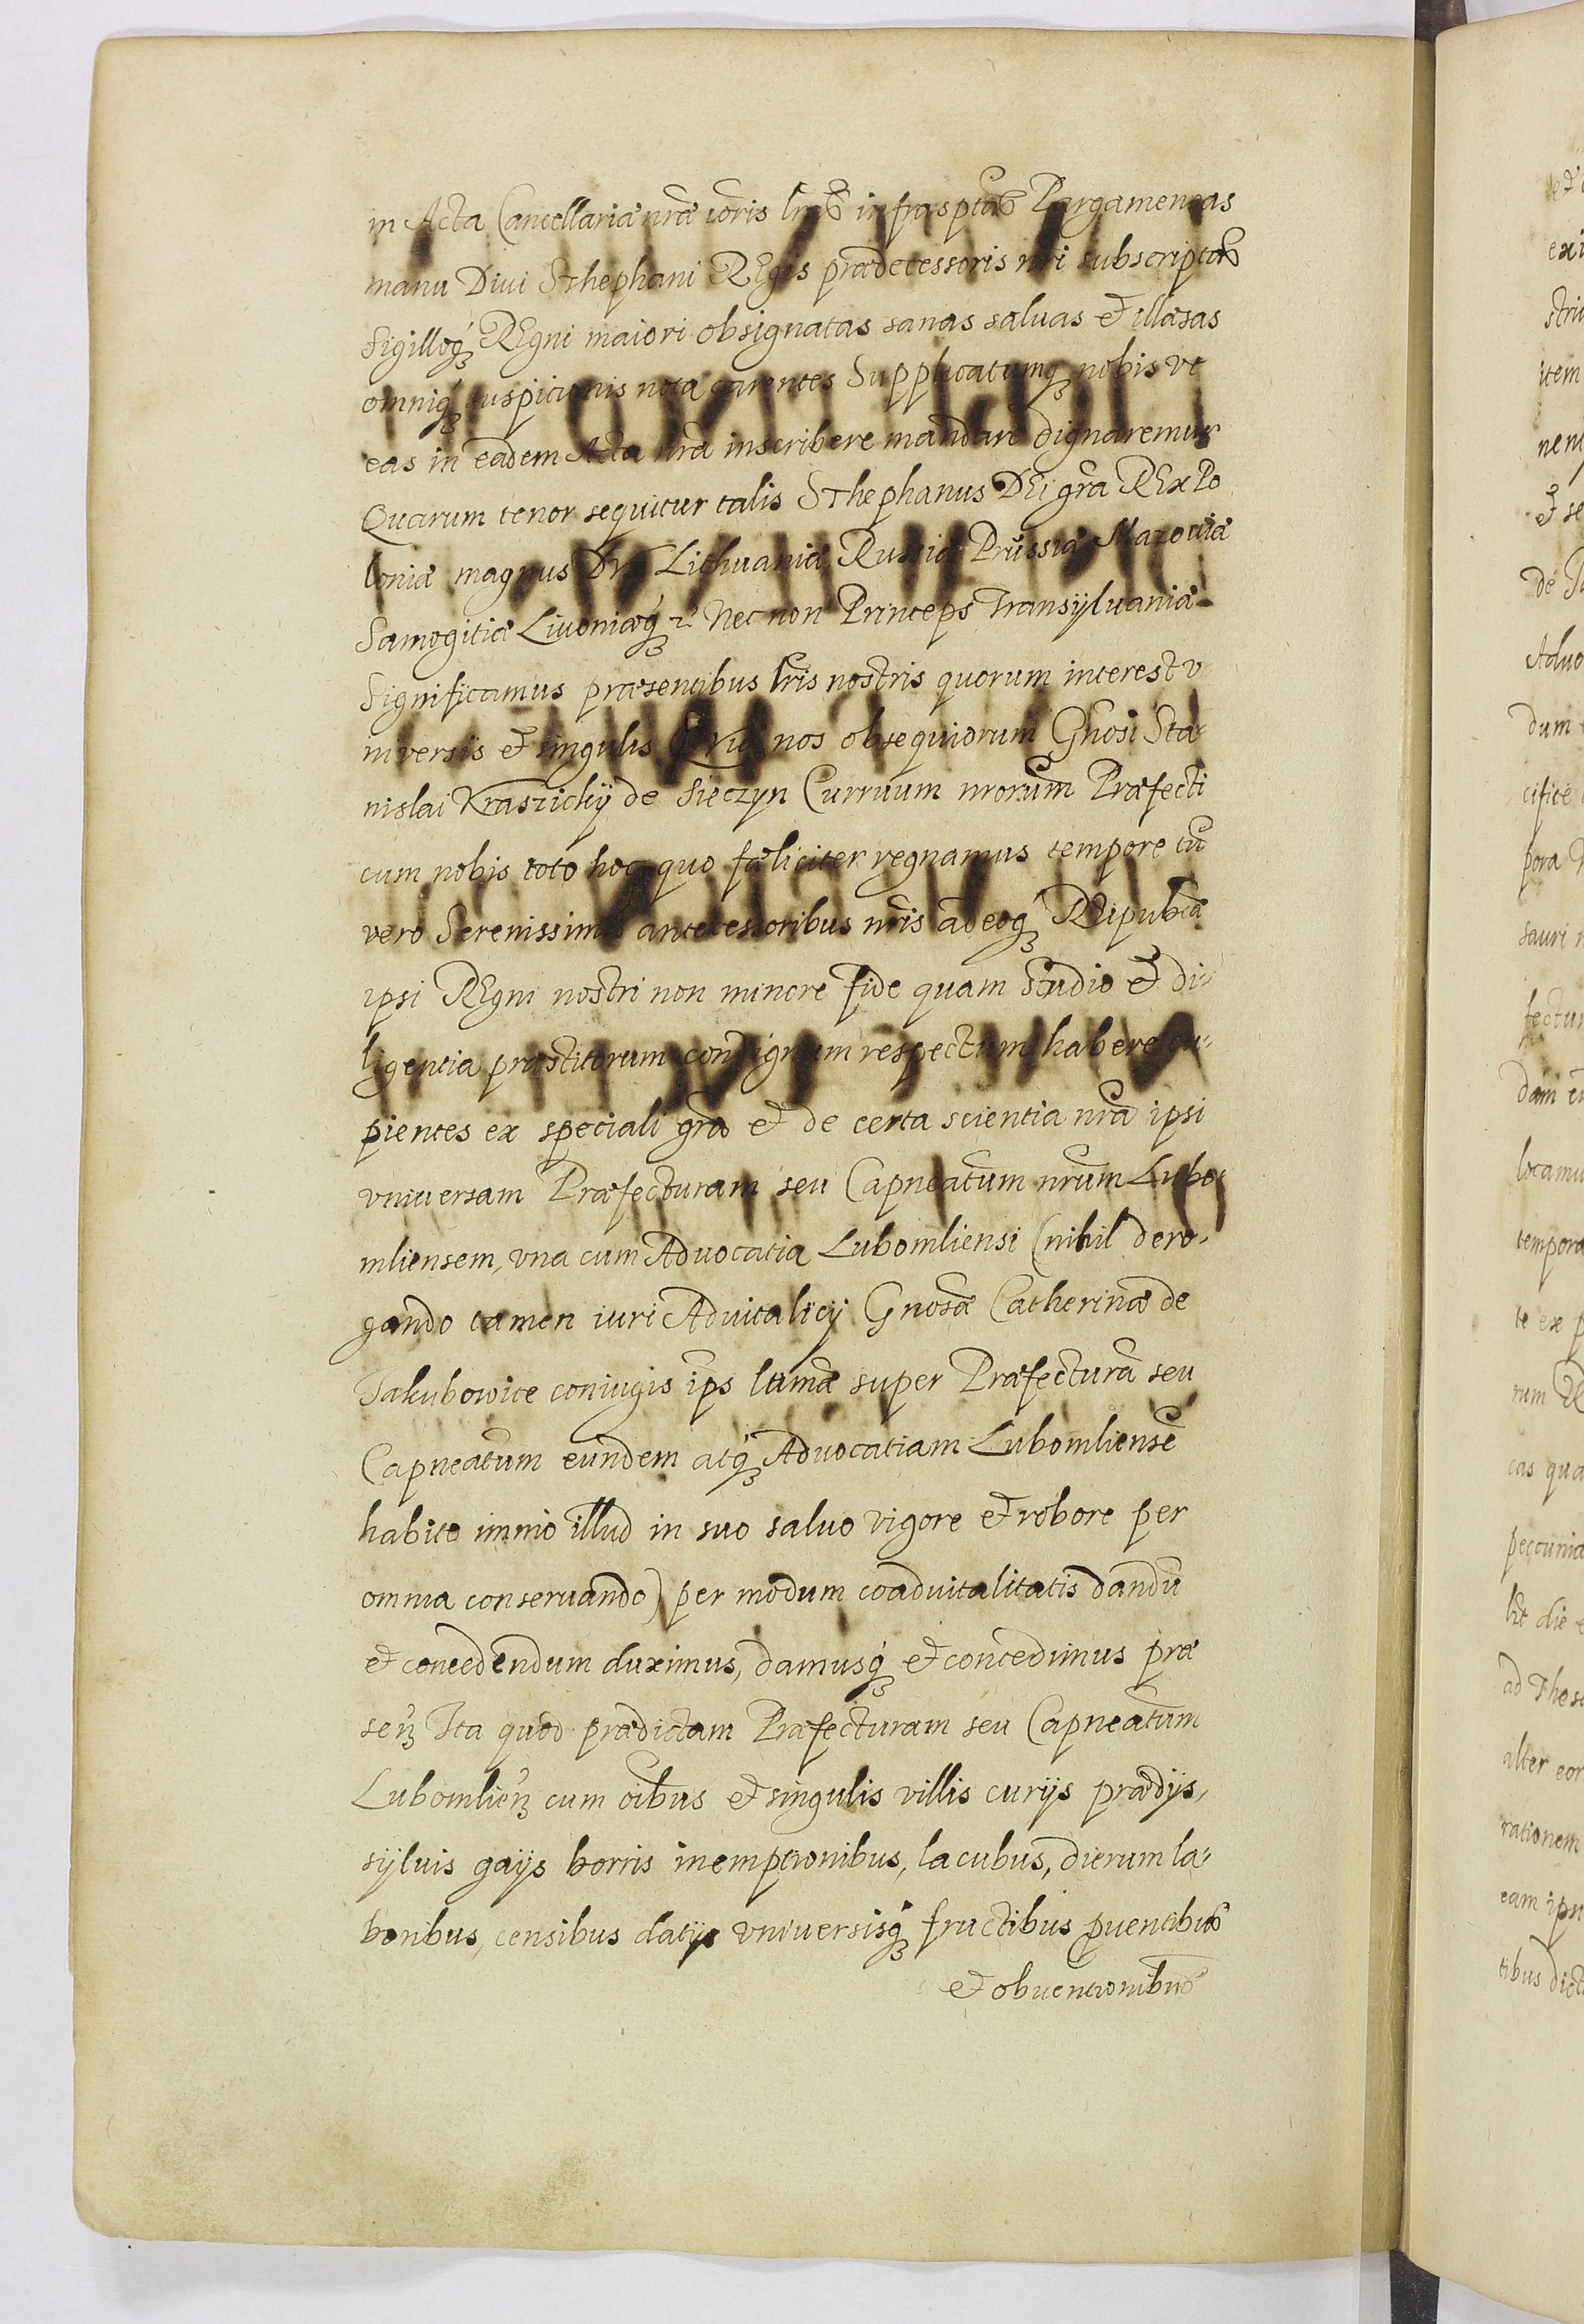 in Acta Cancellariæ nræ coris lras infrasptas Pargameneas
manu Diui Sthephani REgis prædecessoris nri subscriptas
Sigilloq́ꝫ REgni maiori obsignatas sanas saluas et illæsas
omniq́ꝫ suspicionis nota carentes Supplicatumq́ꝫ nobis vt
eas in eadem Acta nra inscribere mandare dignaremur
Quarum tenor sequitur talis Sthephanus DEi gra REx Po
loniæ magnus Dux Lithuaniæ Russiæ Prussiæ Mazouiæ
Samogitiæ Livoniæq́ꝫ Nec non Princeps Transÿluaniæ
Significamus præsentibus lris nostris quorum interest v
niversis et singulis Quia nos obsequiorum Gnosi Sta
nislai Krasiczkÿ de Sieczyn Curruum nrorum Præfecti
cum nobis toto hoc quo fæliciter regnamus tempore tu
vero Serenissimis antecessoribus nris adeoq́ꝫ REipubcæ
ipsi REgni nostri non minore fide quam studio et di-
ligentia præstitorum condignum respectum habere cu-
pientes ex speciali gra et de certa scientia nra ipsi
vniuersam Præfecturam seu Capneatum nrum Lubo
mliensem, vna cum Aduocatia Lubomliensi (nihil dero-
gando tamen iuri Aduitalicÿ Gnosæ Catherinæ de
Jakubowice coniugis ips ltimæ super Præfectura seu
Capneatum eundem atq́ꝫ Aduocatiam Lubomliense
habito immo illud in suo saluo vigore et robore per
omnia conseruando) per modum coaduitalitatis dandu
et concedendum duximus, damusq́ꝫ et concedimus præ
senꝫ Ita quod prædictam Præfecturam seu Capneatum
Lubomlienꝫ cum oibus et singulis villis curÿs prædÿs,
sÿluis gaÿs borris inemptionibus, lacubus, dierum la-
boribus, censibus datÿs vniuersisq́ꝫ fructibus puentibus
et obuentionibus